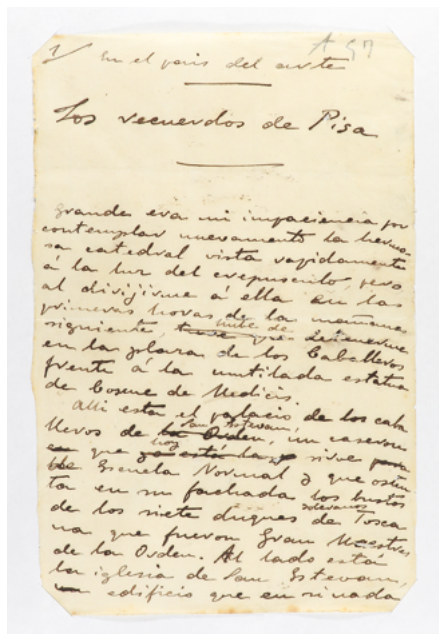 1/ En el pais del arte A 57
Los recuerdos de Pisa
Grande era mi impaciencia por
contemplar nuevamente la hermo-
sa catedral vista rapidamente
á la luz del crepusculo, pero
al dirijirme á ella en las
primeras horas de la mañana
siguiente, hube de detenerme
en la plaza de los Caballeros
frente á la mutilada estatua
de Cosme de Médicis.
Alli esta el palacio de los caba
lleros de San Estevan, un caseron
que hoy sirve
de Escuela Normal y que osten
ta en su fachada los bustos
de los siete duques soberanos de Tosca
na que fueron Gran Maestres
de la Orden. Al lado está
la iglesia de San Estevan,
edificio que en su nada